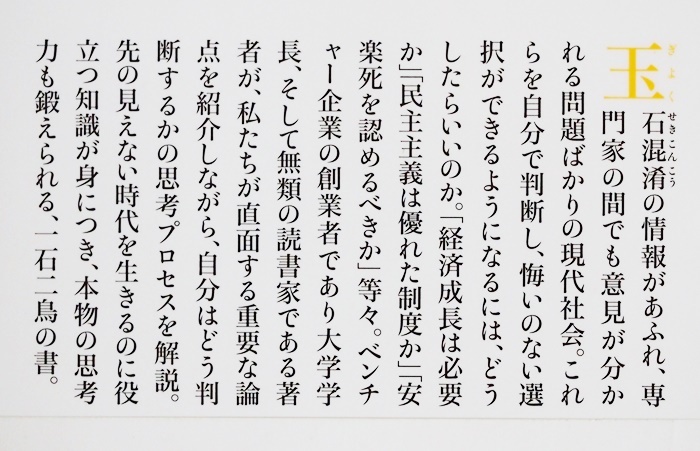 玉石混淆の情報があふれ、専
門家の間でも意見が分か
れる問題ばかりの現代社会。これ
らを自分で判断し、悔いのない選
択ができるようになるには、どう
したらいいのか。「経済成長は必要
か」「民主主義は優れた制度か」「安
楽死を認めるべきか」等々。ベンチ
ャー企業の創業者であり大学学
長、そして無類の読書家である著
者が、私たちが直面する重要な論
点を紹介しながら、自分はどう判
断するかの思考プロセスを解説。
先の見えない時代を生きるのに役
立つ知識が身につき、本物の思考
力も鍛えられる、一石二鳥の書。
ぎよく
せきこんこう